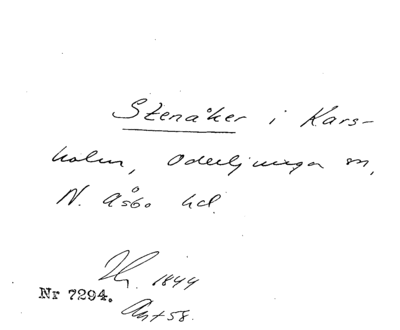 Stenåker i Kars-
holm, Oderljunga sn,
N. Åsbo hd.
1844
Nr 7294.
Ant 58.